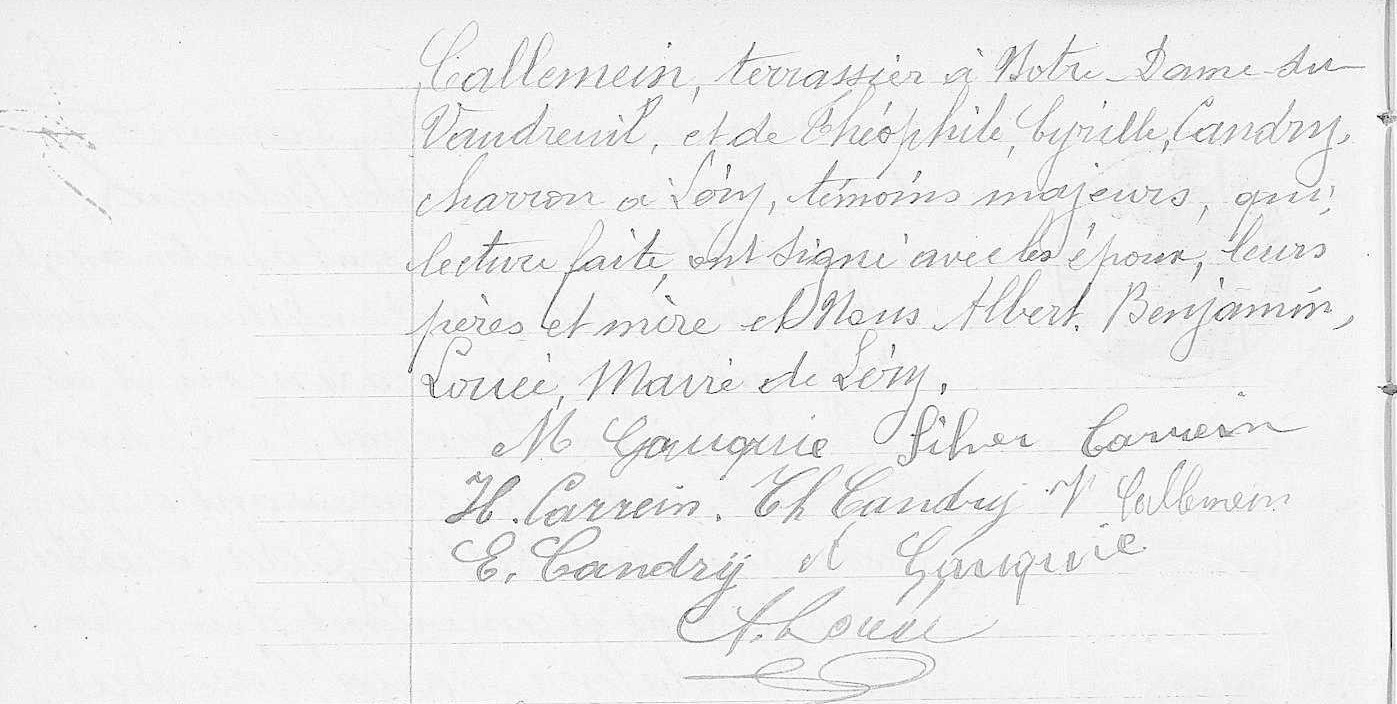 Callemein, terrassier à Notre-Dame-du-
Vaudreuil, et de Théophile, Cyrille, Candry,
charron à Léry, témoins majeurs, qui,
lecture faite, ont signé avec les époux, leurs
pères et mère et Nous Albert, Benjamin,
Louée, Maire de Léry.
M Gauquie Silver Carrein
H. Carrein. Th Candry V Callemein
E. Candrÿ A Gauquie
A. Louée